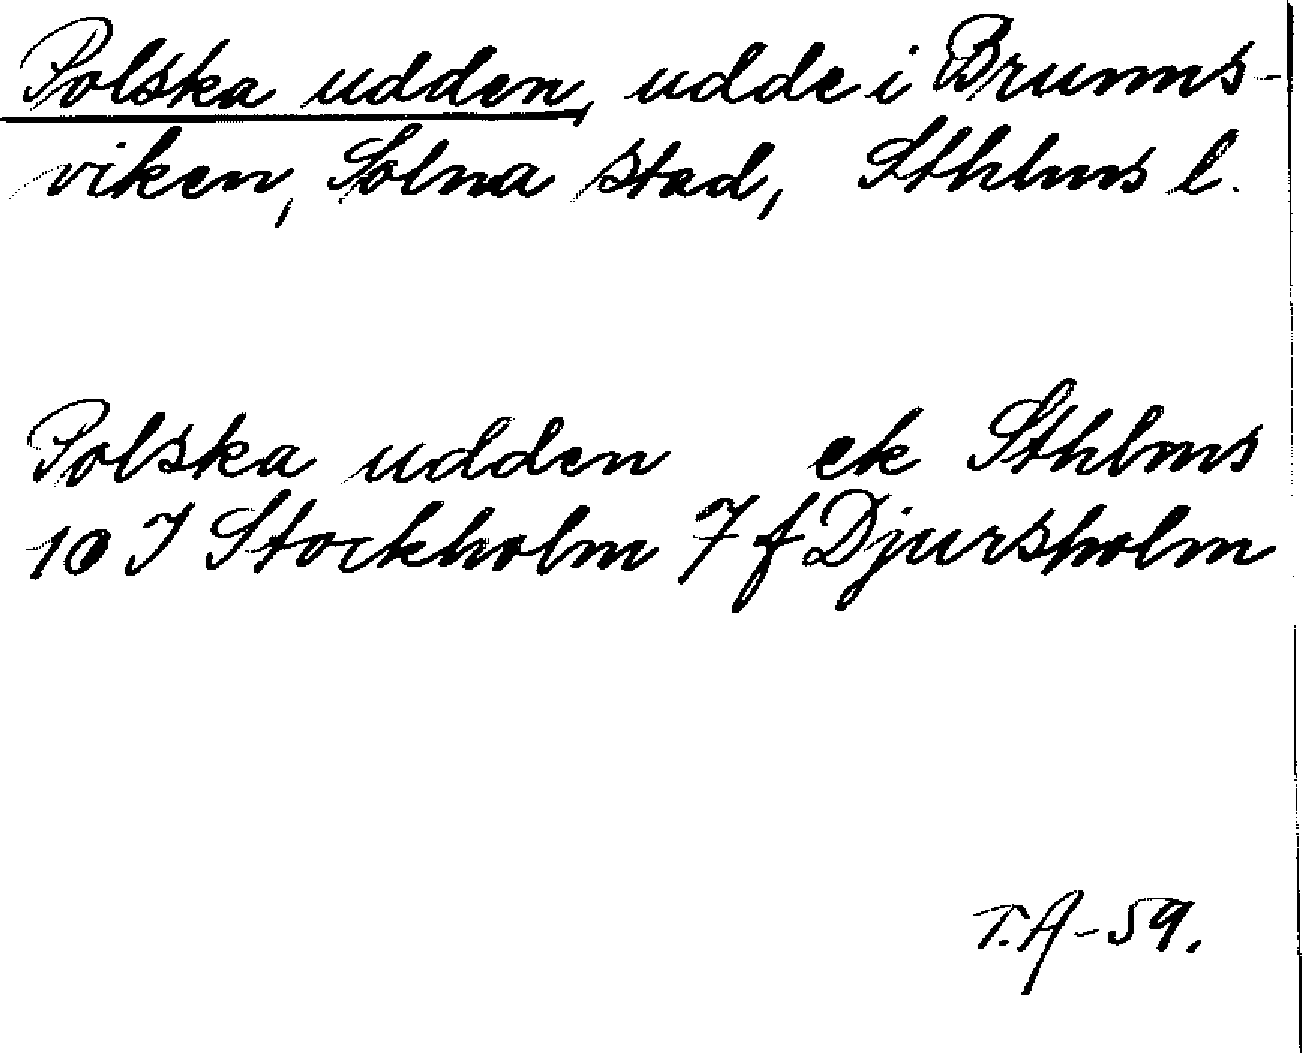 Polska udden, udde i Brunns-
viken, Solna stad, Sthlms l.
Polska udden ek Sthlms
10 I Stockholm 7 f Djursholm
T.A-59.